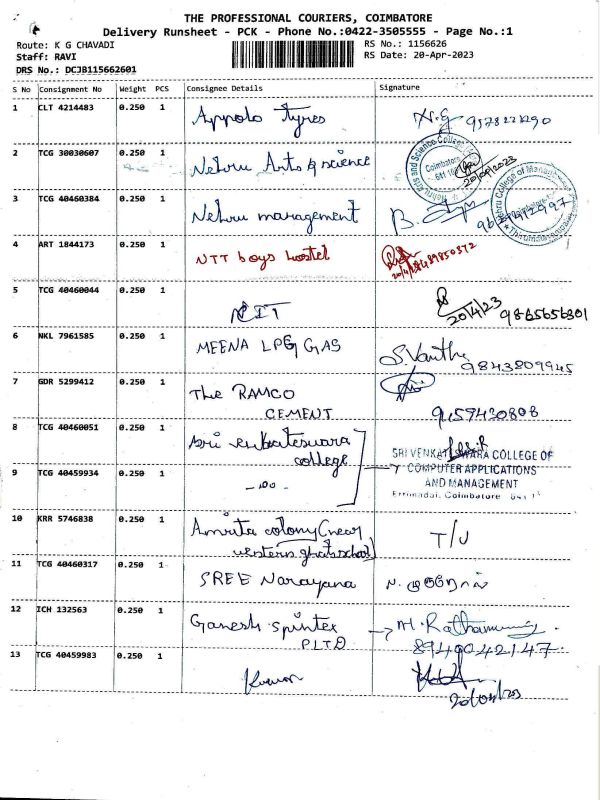 THE PROFESSIONAL COURIERS, COIMBATORE
Delivery Runsheet - PCK - Phone No.:0422-3505555 - Page No.:1
Route: K G CHAVADI
RS No.: 1156626
Staff: RAVI
RS Date: 20-Apr-2023
DRS No.: DCJB115662601
S No Consignment No Weight PCS Consignee Details Signature
1 CLT 4214483 0.250 1 Appolo tyres
2 TCG 30030607 0.250 1 Nehru Arts & science
Coimbatore
20/04/2023
3 TCG 40460384 0.250 1 Nehru management
4 ART 1844173 0.250 1 NTT boys hostel
5 TCG 40460044 0.250 1 NIT
20/4/23 9865656801
6 NKL 7961585 0.250 1 MEENA LPG GAS
9843809945
7 GDR 5299412 0.250 1 The RAMCO
CEMENT 9159430808
8 TCG 40460051 0.250 1 Sri venkateswara
college
SRI VENKATESWARA COLLEGE OF
9 TCG 40459934 0.250 1 - do -
COMPUTER APPLICATIONS
AND MANAGEMENT
Ettimadai, Coimbatore
10 KRR 5746838 0.250 1 Amrita colony (near
western ghats school) T/J
11 TCG 40460317 0.250 1 SREE Narayana
12 ICH 132563 0.250 1 Ganesh spintex
PLTD
8940042147
13 TCG 40459983 0.250 1 Kumar